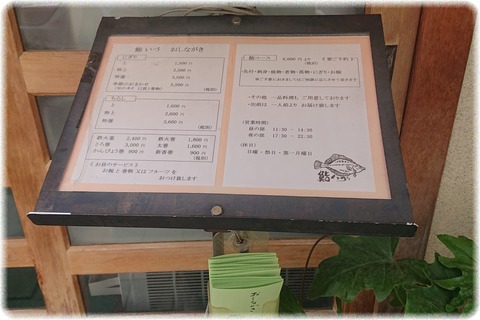 鮨 いづ おしながき
にぎり
上 1,500円
特上 2,500円
特選 3,500円
(税別)
ちらし
上 1,600円
特上 2,600円
特選 3,600円
(税別)
鉄火重 2,400円 鉄火巻 1,600円
とろ巻 3,000円 太巻 1,600円
かんぴょう巻 900円 新香巻 900円
(税別)
お昼のサービス
お椀と巻物又はフルーツを
おつけ致します
鮨コース 6,000円より (要ご予約)
(税別)
・先付・刺身・焼物・煮物・蒸物・にぎり・お椀
・その他 一品料理も、ご用意しております
・出前は 一人前より お届け致します
(営業時間)
昼の部 11:30 - 14:30
夜の部 17:30 - 22:30
(休日)
日曜・祭日・第一月曜日
鮨